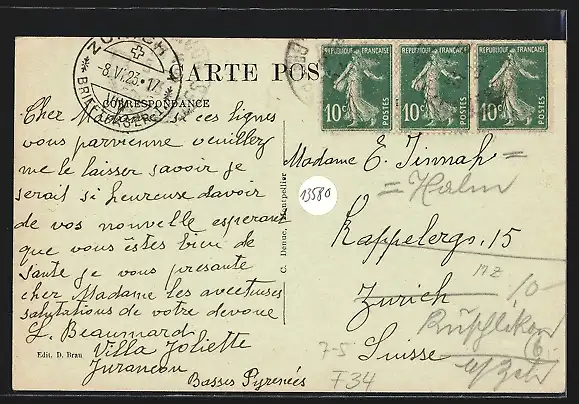 ZÜRICH
-8.VI.23.-17
BRIEFTRÄGER
CARTE POS
CORRESPONDANCE
REPUBLIQUE FRANÇAISE
10c
POSTES
REPUBLIQUE FRANÇAISE
10c
POSTES
REPUBLIQUE FRANÇAISE
10c
POSTES
Cher Madame si ces lignes
vous parvienne veuillez
me le laisser savoir je
serait si heureuse davoir
de vos nouvelle esperant
que vous êstes bien de
sante je vous presante
cher Madame les avectueuses
salutations de votre devoue
L. Beaumard
Villa Joliette
Jurancon
Basses Pyrenées
Edit. D. Brau
C. Denue, Montpellier
13580
Madame E. Tinmah
= Halm
Kappelergs. 15
Zurich
Rüschlikon
Suisse
b/Zch
7-5
F34